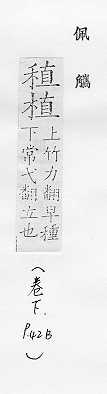 佩觿
稙植
上竹力翻早種
下常弋翻立也
(卷下.
P.42B
)